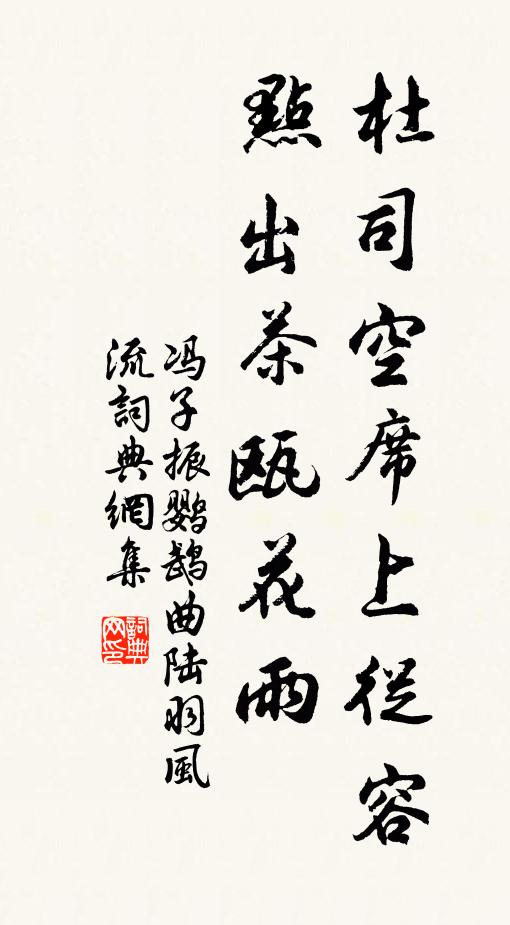 杜司空席上從容
點出茶甌花雨
冯子振鹦鹉曲陆羽風
流詞典網集
詞典网印